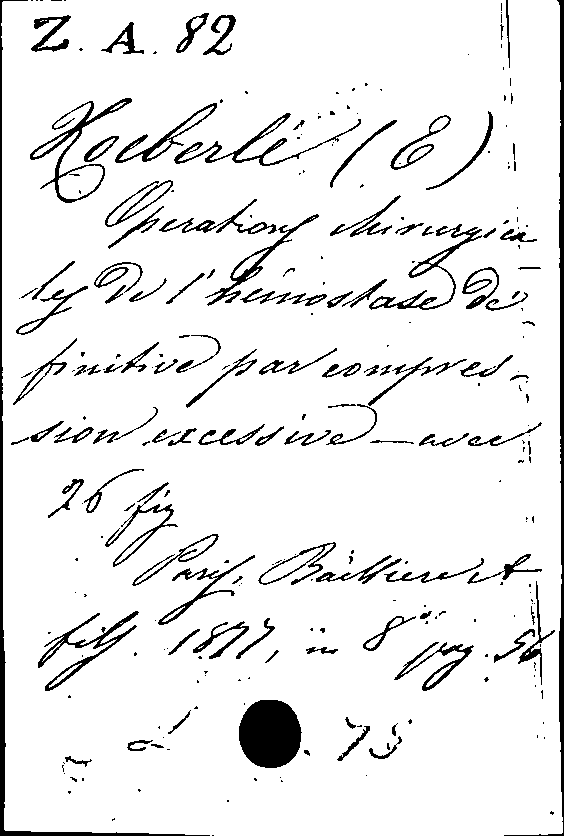 Z. A. 82
Koeberlé (E)
Operations chirurgica
les de l'hémostase dé-
finitive par compres-
sion excessive — avec
26 fig
Paris, Baillière et
fils. 1877, in 8° pag. 56
75